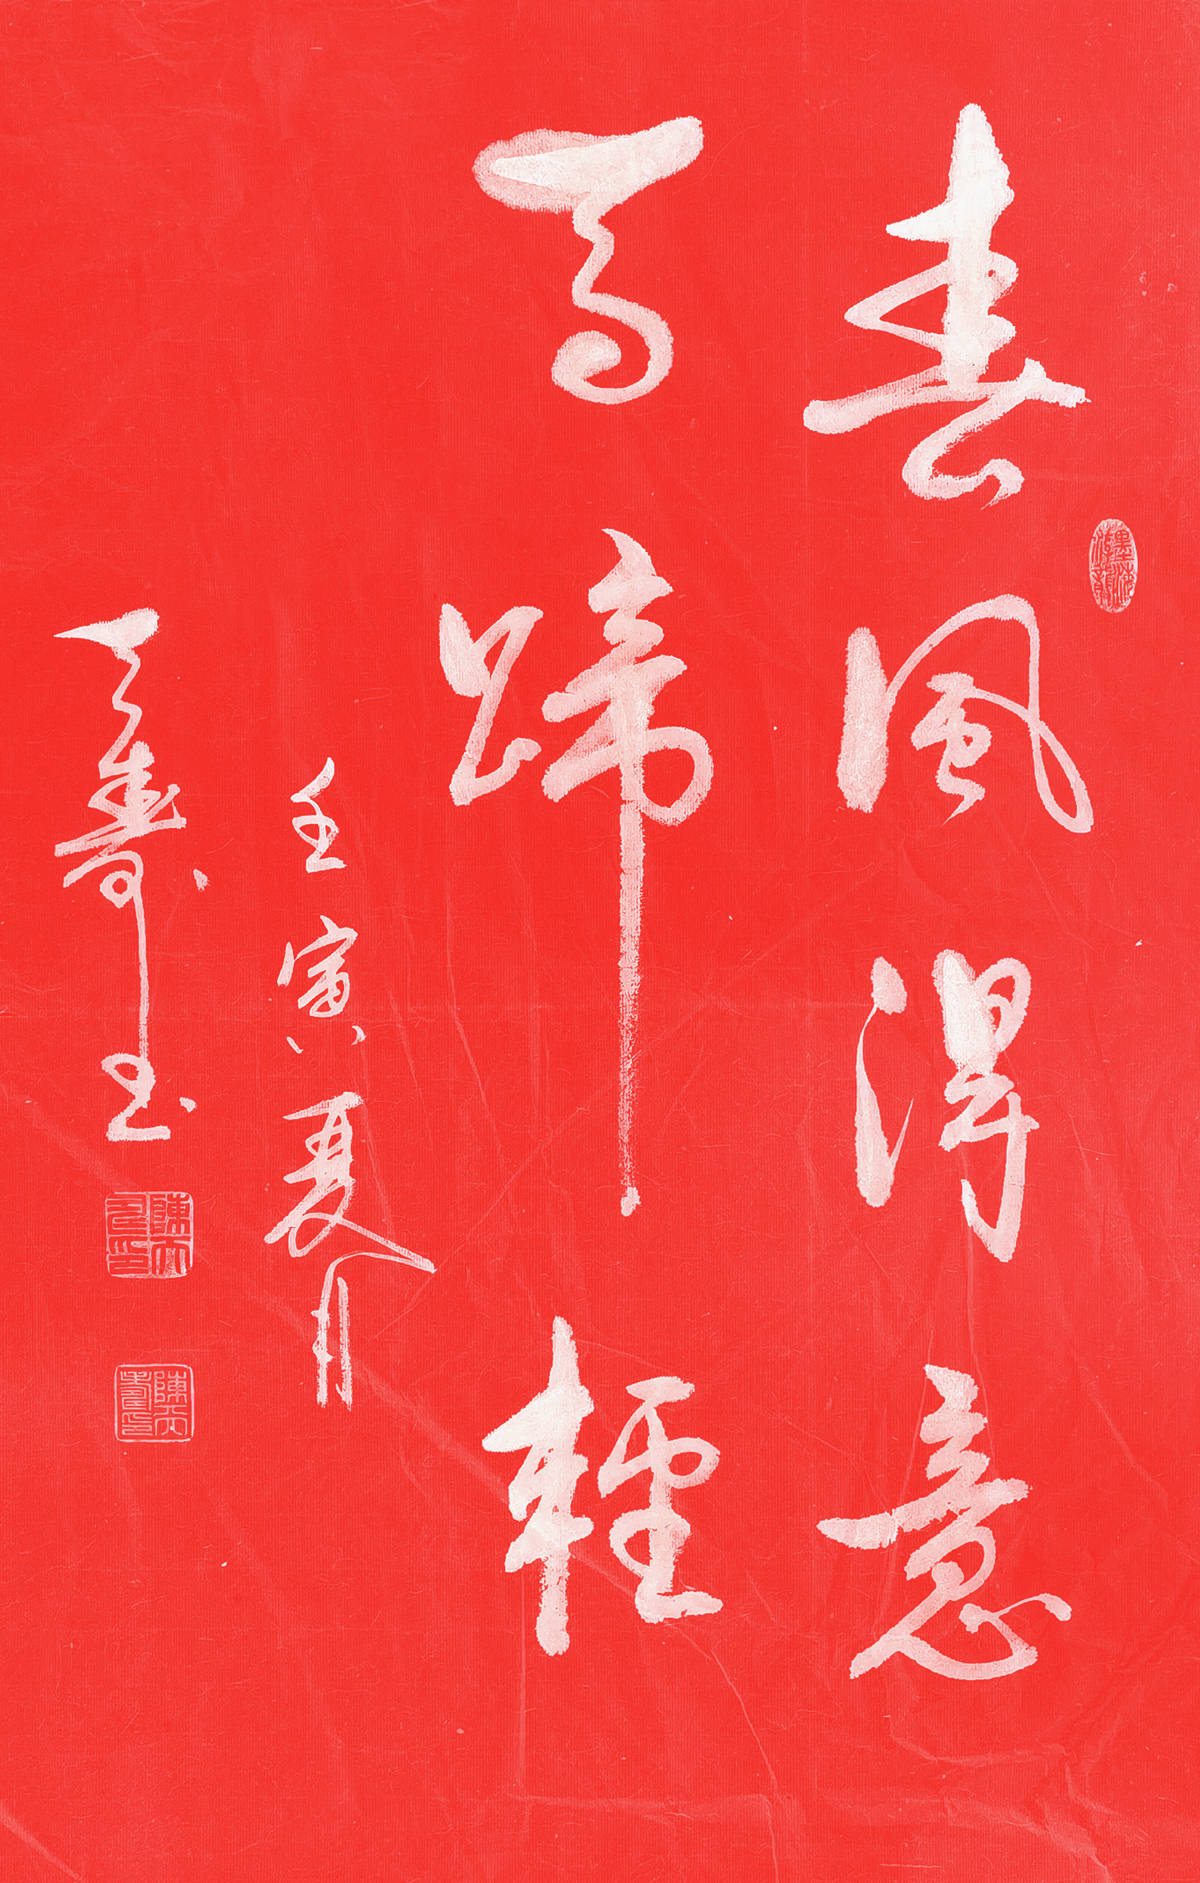 春風得意
馬蹄輕
壬寅夏月
天壽書